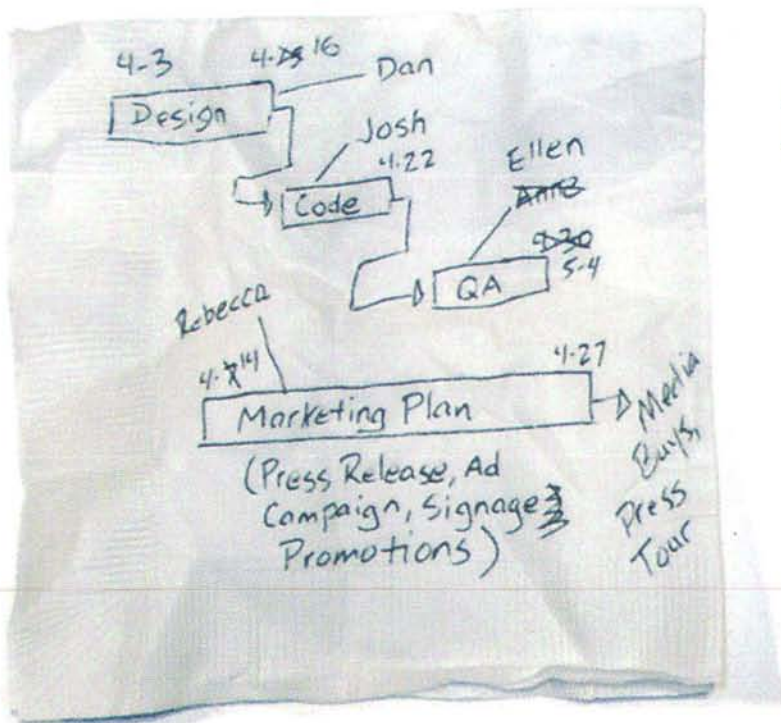 4-3 4-16
Dan
Design
Josh
4-22
Code
Ellen
5-4
QA
Rebecca
4-14 4-27
Marketing Plan
Media
Buys,
Press
Tour
(Press Release, Ad
Campaign, Signage
Promotions)